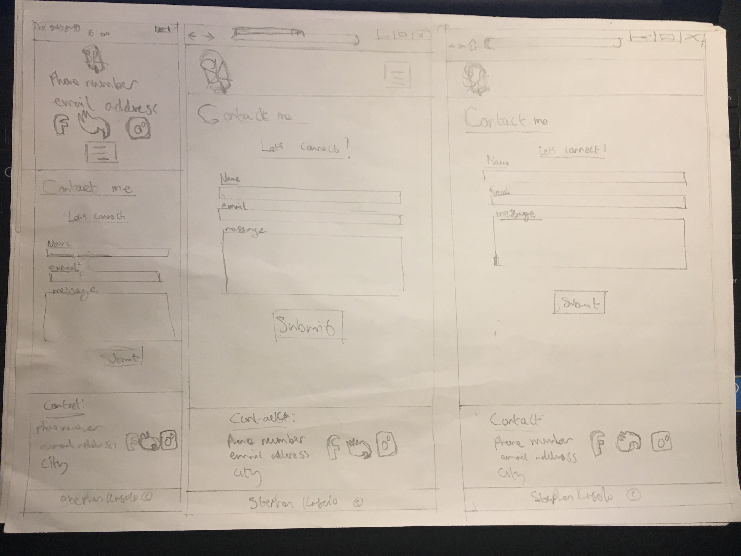 Phone number
email address
Contact me
Lets connect
Name
email
message
Submit
Contact:
phone number
email address
City
Contact me
Lets connect!
Name
email
message
Submit
Contact:
Phone number
email address
City
Stephen
Contact me
Lets connect!
Name
Email
message
Submit
Contact
Phone number
email address
City
Stephen